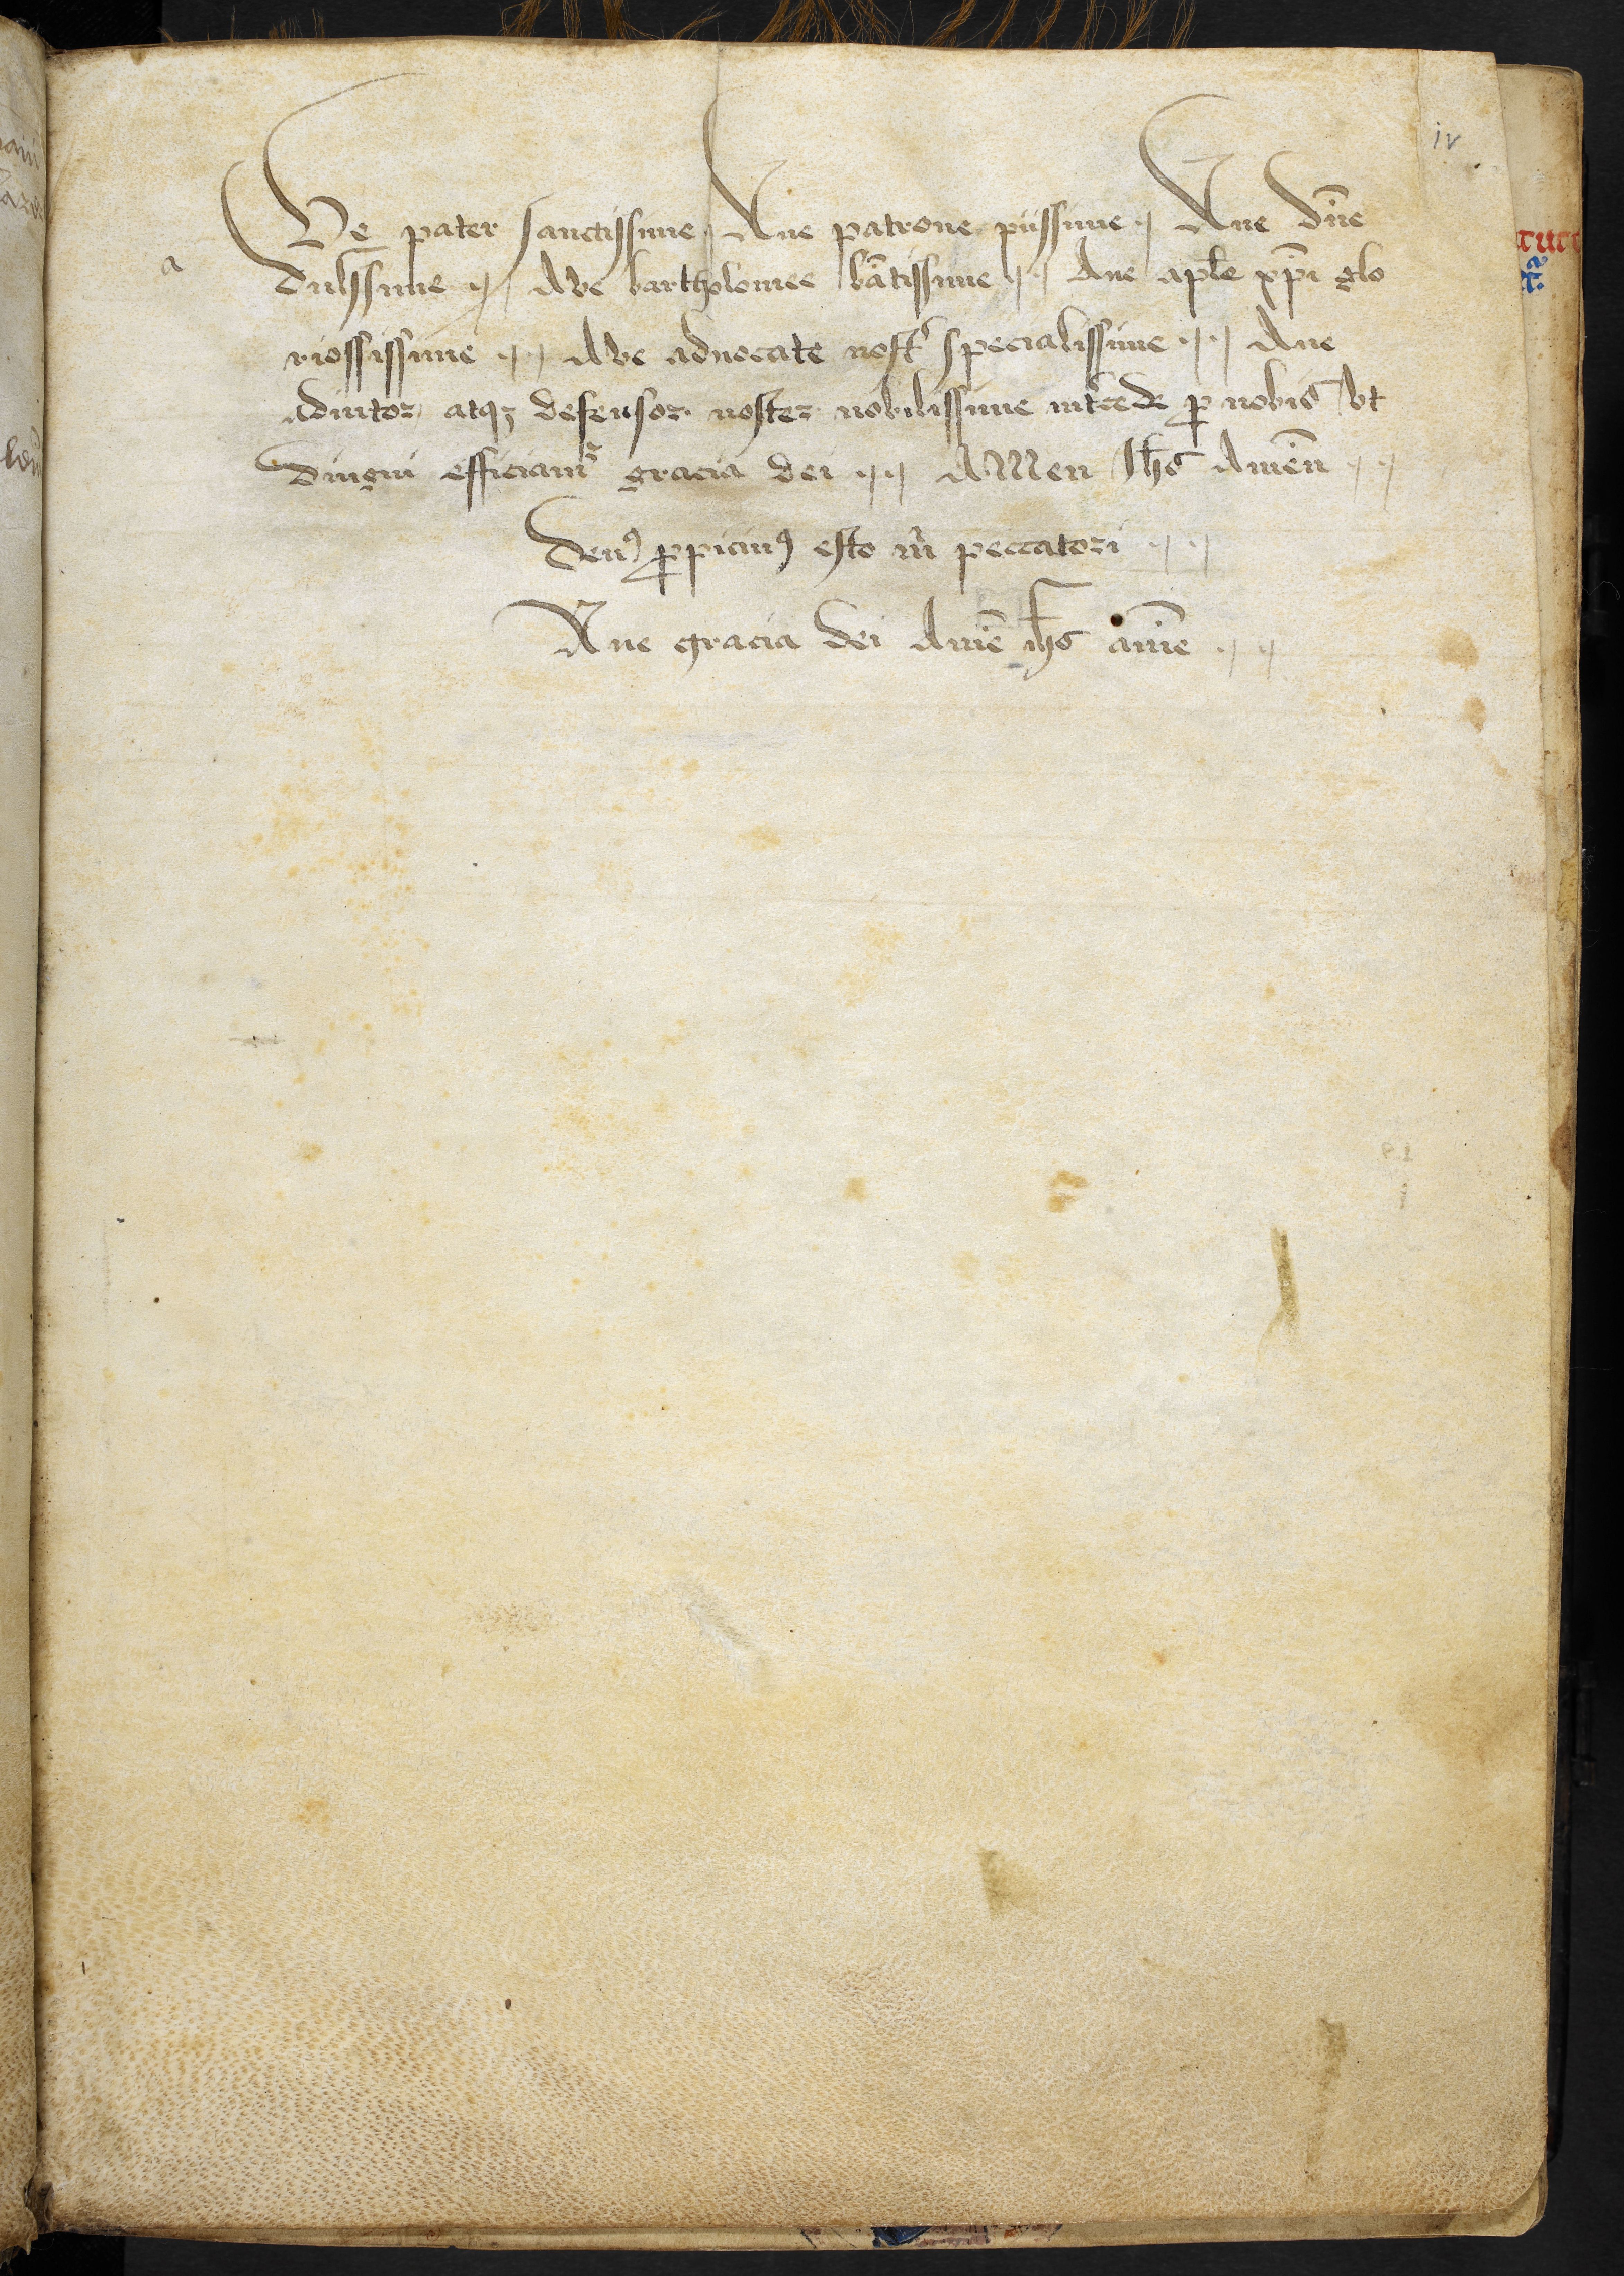 iv
Ve pater sanctissime Aue patrone piissime Aue dn̄e
a
dulssime Ave bartholomee bāt̄issime Aue apl̄e xp̄i glo
riossissime Ave aduocate nostr̉ specialissime Aue
adiutor atqꝫ defensor noster nobilissime int̉cede ꝓ nobis vt
dingni efficiam᷑ gracia dei AMen Ih̄s Amēn
Deuꝯ ꝓpiciuꝯ esto m̉ peccatori
Aue gracia dei Amē ih̄s amē